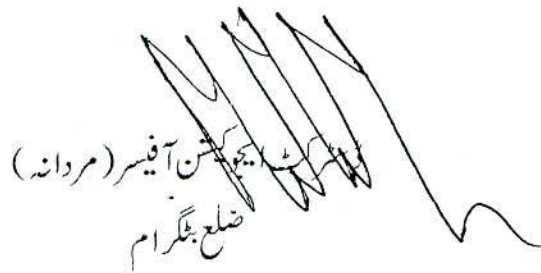 ڈسٹرکٹ ایجوکیشن آفیسر (مردانہ)
ضلع بٹگرام